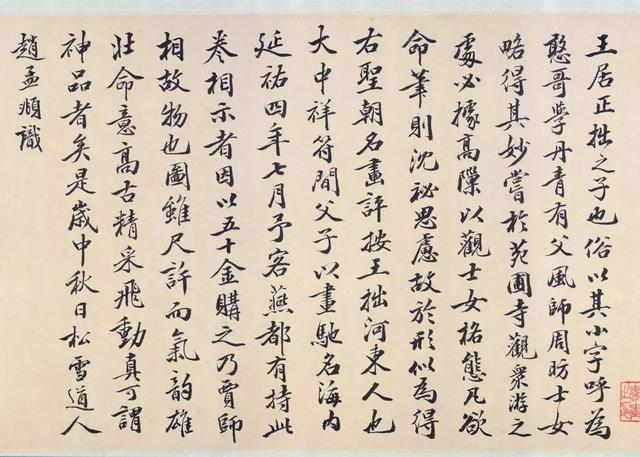 王居正拙之子也俗以其小字呼為
憨哥學丹青有父風師周昉士女
略得其妙嘗於苑圃寺觀眾游之
處必據高隙以觀士女格態凡欲
命筆則沈祕思慮故於形似為得
右聖朝名畫評按王拙河東人也
大中祥符間父子以畫馳名海內
延祐四年七月予客燕都有持此
卷相示者因以五十金購之乃賈師
相故物也圖雖尺許而氣韵雄
壯命意高古精采飛動真可謂
神品者矣是歲中秋日松雪道人
趙孟頫識